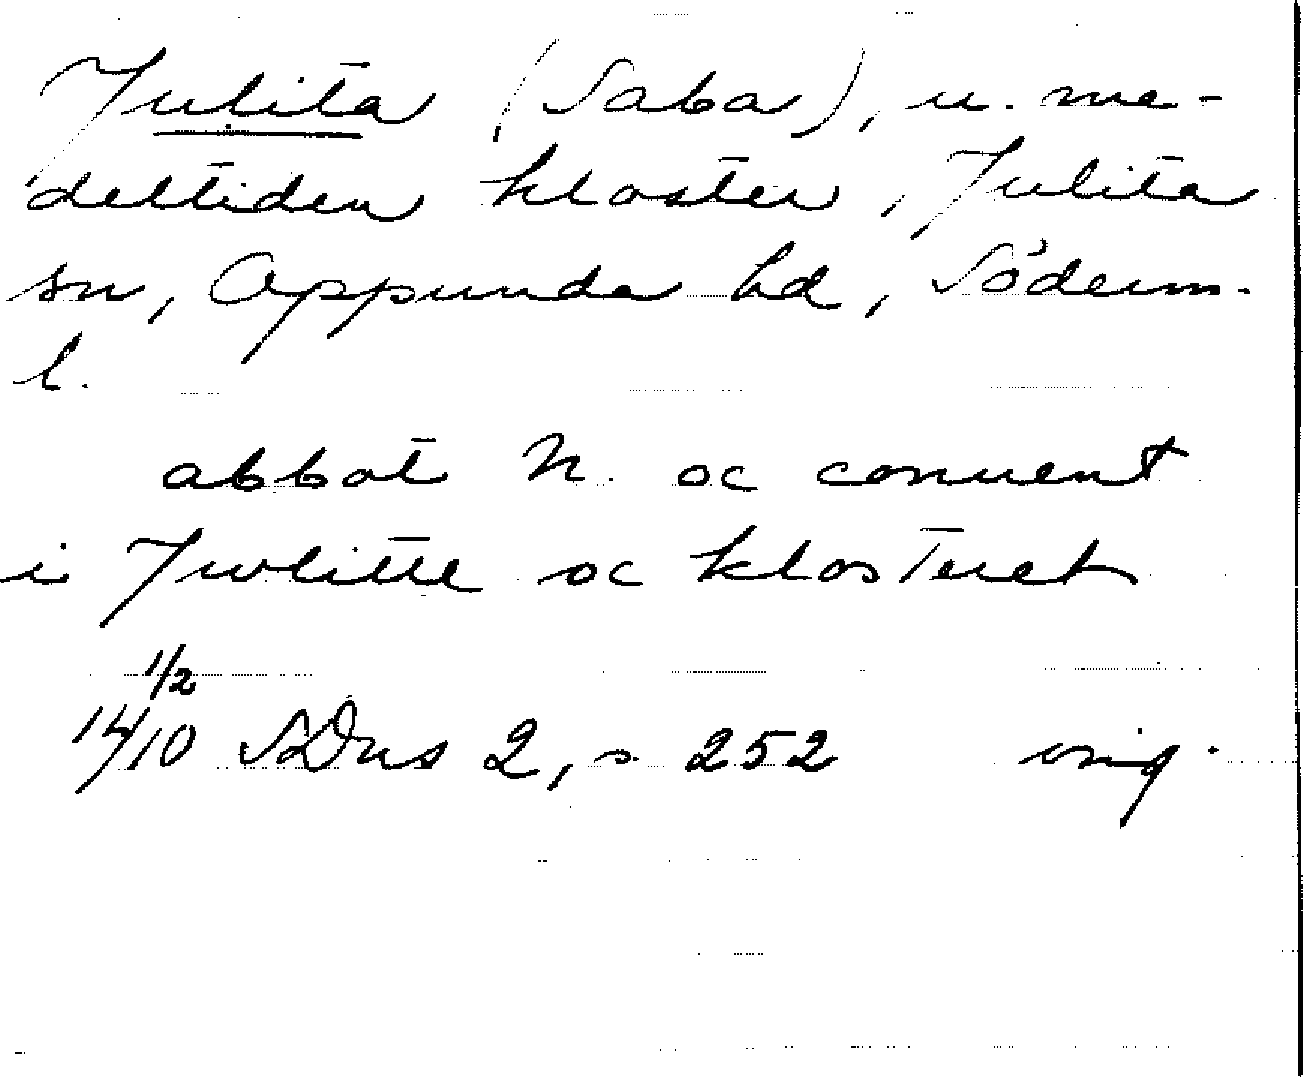 Julita (Saba), u. me-
deltiden kloster, Julita
sn, Oppunda hd, Söderm.
l.
abbot N. oc conuent
i Jwlitte oc klosteret
1/2
14/10 SDns 2, s. 252 orig.